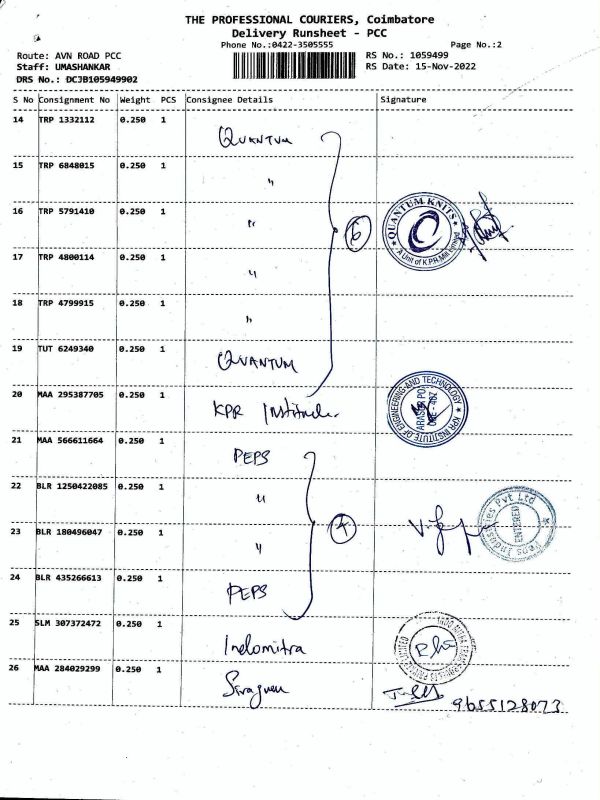 THE PROFESSIONAL COURIERS, Coimbatore
Delivery Runsheet - PCC
Phone No.:0422-3505555 Page No.:2
Route: AVN ROAD PCC RS No.: 1059499
Staff: UMASHANKAR RS Date: 15-Nov-2022
DRS No.: DCJB105949902
S No Consignment No Weight PCS Consignee Details Signature
14 TRP 1332112 0.250 1 QUANTUM
15 TRP 6848015 0.250 1 "
16 TRP 5791410 0.250 1 " 6 QUANTUM KNITS A Unit of K.P.R. Mill Limited
17 TRP 4800114 0.250 1 "
18 TRP 4799915 0.250 1 "
19 TUT 6249340 0.250 1 QUANTUM
20 MAA 295387705 0.250 1 KPR Institude. KPR INSTITUTE OF ENGINEERING AND TECHNOLOGY
21 MAA 566611664 0.250 1 PEPS
22 BLR 1250422085 0.250 1 "
23 BLR 180496047 0.250 1 " 4 Peps Industries Pvt Ltd ENTERED
24 BLR 435266613 0.250 1 PEPS
25 SLM 307372472 0.250 1 Indomitra
26 MAA 284029299 0.250 1 9655128073